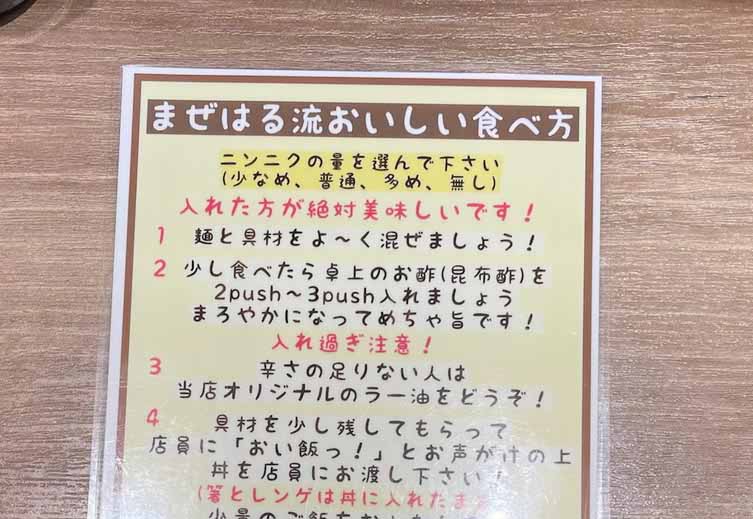 まぜはる流おいしい食べ方
ニンニクの量を選んで下さい
(少なめ、普通、多め、無し)
入れた方が絶対美味しいです！
1 麺と具材をよ〜く混ぜましょう！
2 少し食べたら卓上のお酢(昆布酢)を
2push〜3push入れましょう
まろやかになってめちゃ旨です！
入れ過ぎ注意！
3 辛さの足りない人は
当店オリジナルのラー油をどうぞ！
4 具材を少し残してもらって
店員に「おい飯っ！」とお声がけの上
丼を店員にお渡し下さい！
(箸とレンゲは丼に入れたまま
少量のご飯を